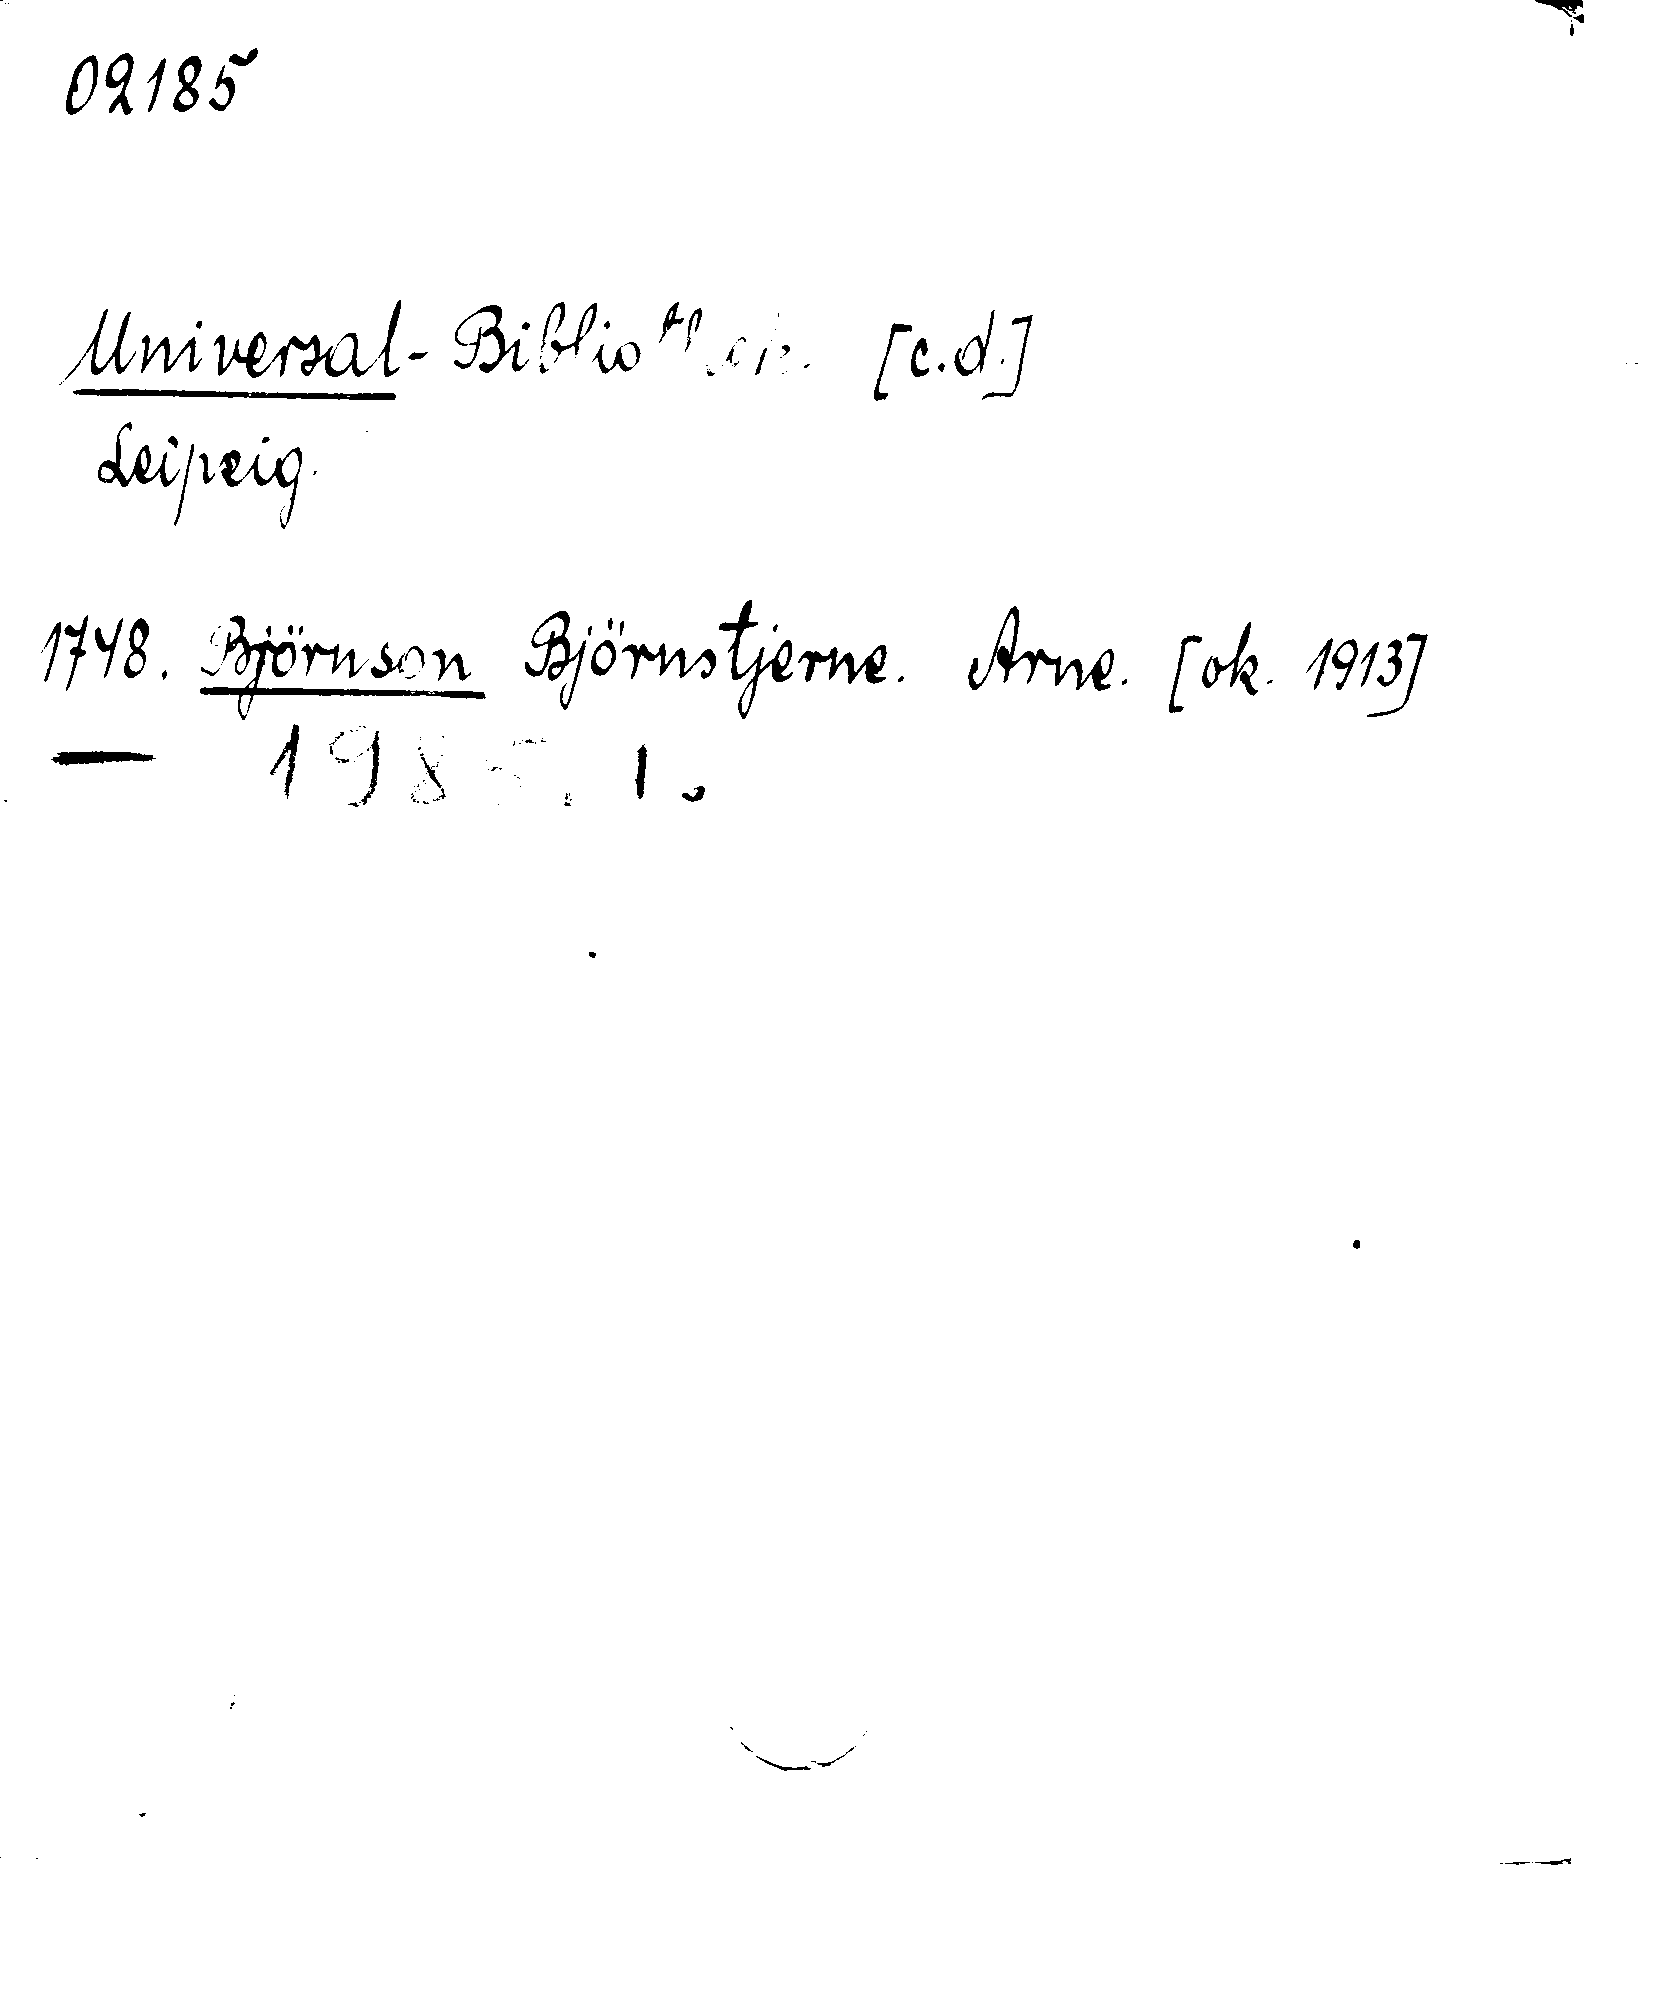 02185
Universal-Bibliothek. [c.d.]
Leipzig.
1748. Björnson Björnstjerne. Arne. [ok. 1913]
— 1985. 1.